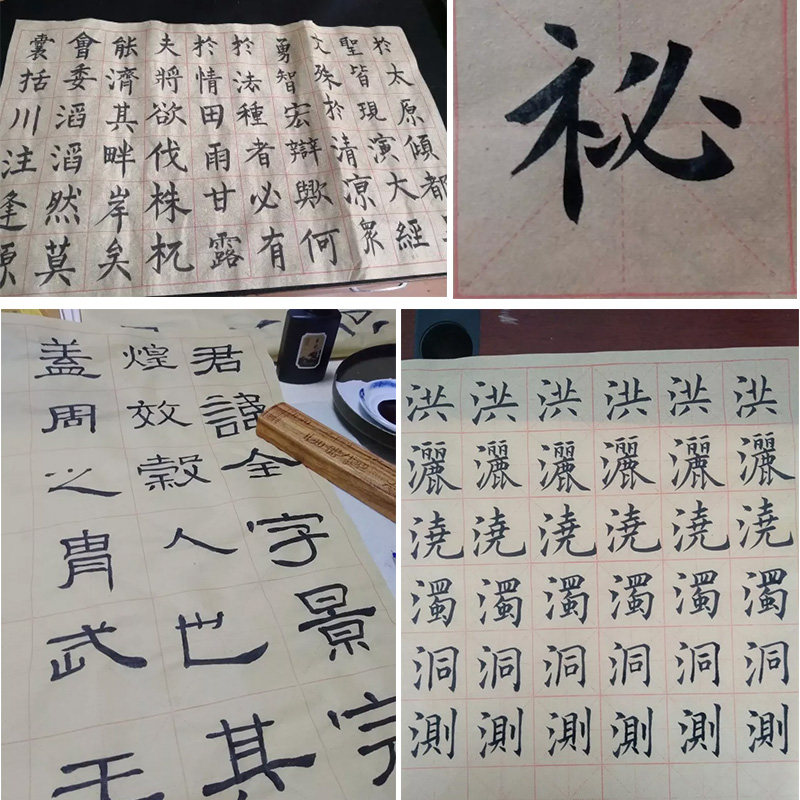 於太原傾都
聖皆現演大經
文殊於清涼眾
勇智宏辯歟何
於法種者必有
於情田雨甘露
夫將欲伐株杌
能濟其畔岸矣
會委滔滔然莫
囊括川注逢源
祕
君諱全字景完
煌效穀人也其
蓋周之胄武王
洪灑澆濁洞測
洪灑澆濁洞測
洪灑澆濁洞測
洪灑澆濁洞測
洪灑澆濁洞測
洪灑澆濁洞測